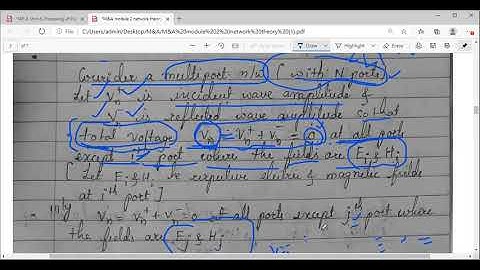 C:/Users/admin/Desktop/M&A/M&A%20module%202%20network%20theory%20(1).pdf
of 7
Consider a multiport n/w ( with N ports )
Let Vn+ is incident wave amplitude &
Vn- is reflected wave amplitude so that
[total voltage Vn = Vn+ + Vn- = 0 at all ports
except ith port where the fields are Ei & Hi
[ Let Ei & Hi be respective electric & magnetic fields
at ith port ]
|||ly Vn = Vn+ + Vn- = 0 at all ports except jth port where
the fields are Ej & Hj